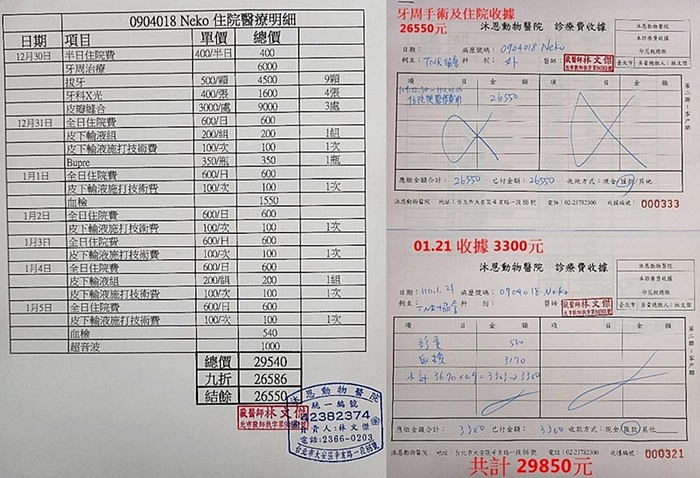 0904018 Neko 住院醫療明細
日期 項目 單價 總價
12月30日 半日住院費 400/半日 400
牙周治療 6000
拔牙 500/顆 4500 9顆
牙科X光 400/張 1600 4張
皮瓣縫合 3000/處 9000 3處
12月31日 全日住院費 600/日 600
皮下輸液組 200/組 200 1組
皮下輸液施打技術費 100/次 100 1次
Bupre 350/瓶 350 1瓶
1月1日 全日住院費 600/日 600
皮下輸液施打技術費 100/次 100 1次
血檢 1550
1月2日 全日住院費 600/日 600
皮下輸液施打技術費 100/次 100 1次
1月3日 全日住院費 600/日 600
皮下輸液施打技術費 100/次 100 1次
1月4日 全日住院費 600/日 600
皮下輸液組 200/組 200 1組
皮下輸液施打技術費 100/次 100 1次
1月5日 全日住院費 600/日 600
皮下輸液施打技術費 100/次 100 1次
血檢 540
超音波 1000
總價 29540
九折 26586
結餘 26550
獸醫師 林文傑
沐恩動物醫院
統一編號
2382374
負責人:林文傑
電話:2366-0203
台北市大安區辛亥路一段86號
牙周手術及住院收據
26550元
沐恩動物醫院 診療費收據
日期: 病歷號碼: 0904018 Neko
飼主: TNR協會 科別: 外 醫師: 獸醫師林文傑
臺北市 負責總繳人:林文傑
項目 金額 項目 金額
住院醫療費用 26550
應繳金額合計: 26550 已付金額: 26550 收款方式:現金 匯款 其他
沐恩動物醫院 地址:台北市大安區辛亥路一段86號 電話:02-23782300 收據編號: 000333
第二聯:客戶聯
01.21 收據 3300元
沐恩動物醫院 診療費收據
日期: 110.1.21 病歷號碼: 0904018 Neko
飼主: TNR協會 科別: 醫師: 獸醫師林文傑
本診療費收據
印花稅總繳
臺北市 負責總繳人:林文傑
項目 金額 項目 金額
診費 500
血檢 3170
小計 3670×0.9=3303→3300
應繳金額合計: 3300 已付金額: 3300 收款方式:現金 匯款 其他
沐恩動物醫院 地址:台北市大安區辛亥路一段86號 電話:02-23782300 收據編號: 000321
第二聯:客戶聯
共計 29850元